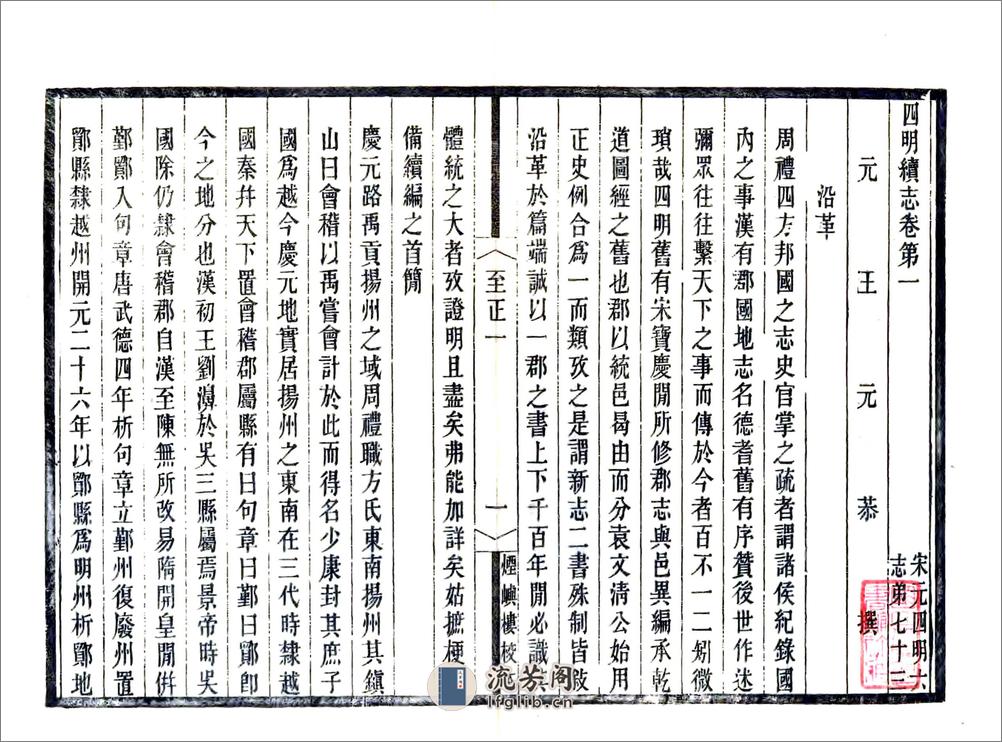 四明續志卷第一
宋元四明六
志弟七十三
元 王元恭 撰
沿革
周禮四方邦國之志史官掌之疏者謂諸侯紀錄國
內之事漢有郡國地志名德耆舊有序贊後世作述
彌眾往往繫天下之事而傳於今者百不一二矧微
瑣哉四明舊有宋寶慶閒所修郡志與邑異編承乾
道圖經之舊也郡以統邑曷由而分袁文清公始用
正史例合爲一而類攷之是謂新志二書殊制皆敘
沿革於篇端誠以一郡之書上下千百年閒必識
至正一
一
煙嶼樓校
體統之大者攷證明且盡矣弗能加詳矣姑摭梗
備續編之首簡
慶元路禹貢揚州之域周禮職方氏東南揚州其鎮
山曰會稽以禹嘗會計於此而得名少康封其庶子
國爲越今慶元地實居揚州之東南在三代時隸越
國秦幷天下置會稽郡屬縣有曰句章曰鄞曰鄮卽
今之地分也漢初王劉濞於吳三縣屬焉景帝時吳
國除仍隸會稽郡自漢至陳無所改易隋開皇閒倂
鄞鄮入句章唐武德四年析句章立鄞州復廢州置
鄮縣隸越州開元二十六年以鄮縣爲明州析鄮地
流芳阁
lfglib.cn